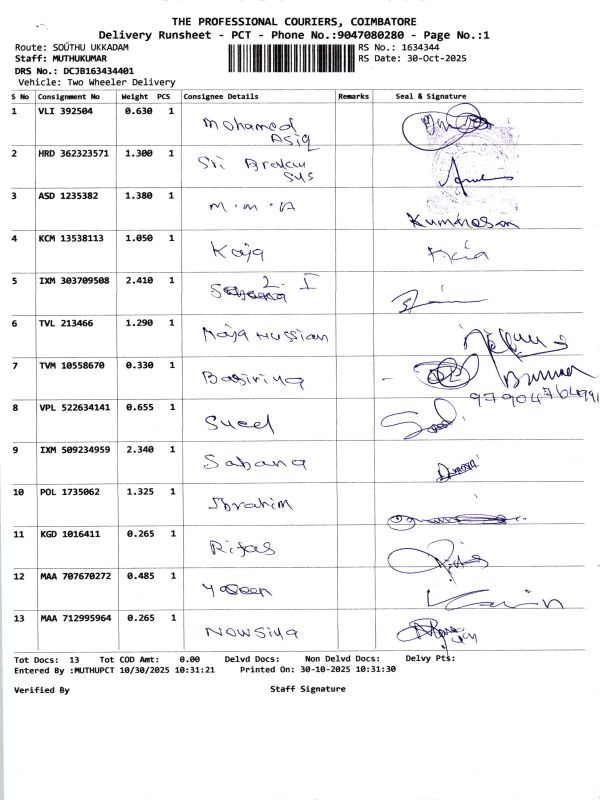 THE PROFESSIONAL COURIERS, COIMBATORE
Delivery Runsheet - PCT - Phone No.:9047080280 - Page No.:1
Route: SOUTHU UKKADAM RS No.: 1634344
Staff: MUTHUKUMAR RS Date: 30-Oct-2025
DRS No.: DCJB163434401
Vehicle: Two Wheeler Delivery
S No Consignment No Weight PCS Consignee Details Remarks Seal & Signature
1 VLI 392504 0.630 1 Mohamed
Asiq
2 HRD 362323571 1.300 1 Sri
Sys
3 ASD 1235382 1.380 1 M.M.A
Kumaresan
4 KCM 13538113 1.050 1 Kaja
5 IXM 303709508 2.410 1
6 TVL 213466 1.290 1 Raja Hussian
7 TVM 10558670 0.330 1 Basiriya
8 VPL 522634141 0.655 1 Sueel
9 IXM 509234959 2.340 1 Sabana
10 POL 1735062 1.325 1 Ibrahim
11 KGD 1016411 0.265 1 Rifas
12 MAA 707670272 0.485 1 Yaseen
13 MAA 712995964 0.265 1 Nowsiya
Tot Docs: 13 Tot COD Amt: 0.00 Delvd Docs: Non Delvd Docs: Delvy Pts:
Entered By :MUTHUPCT 10/30/2025 10:31:21 Printed On: 30-10-2025 10:31:30
Verified By Staff Signature